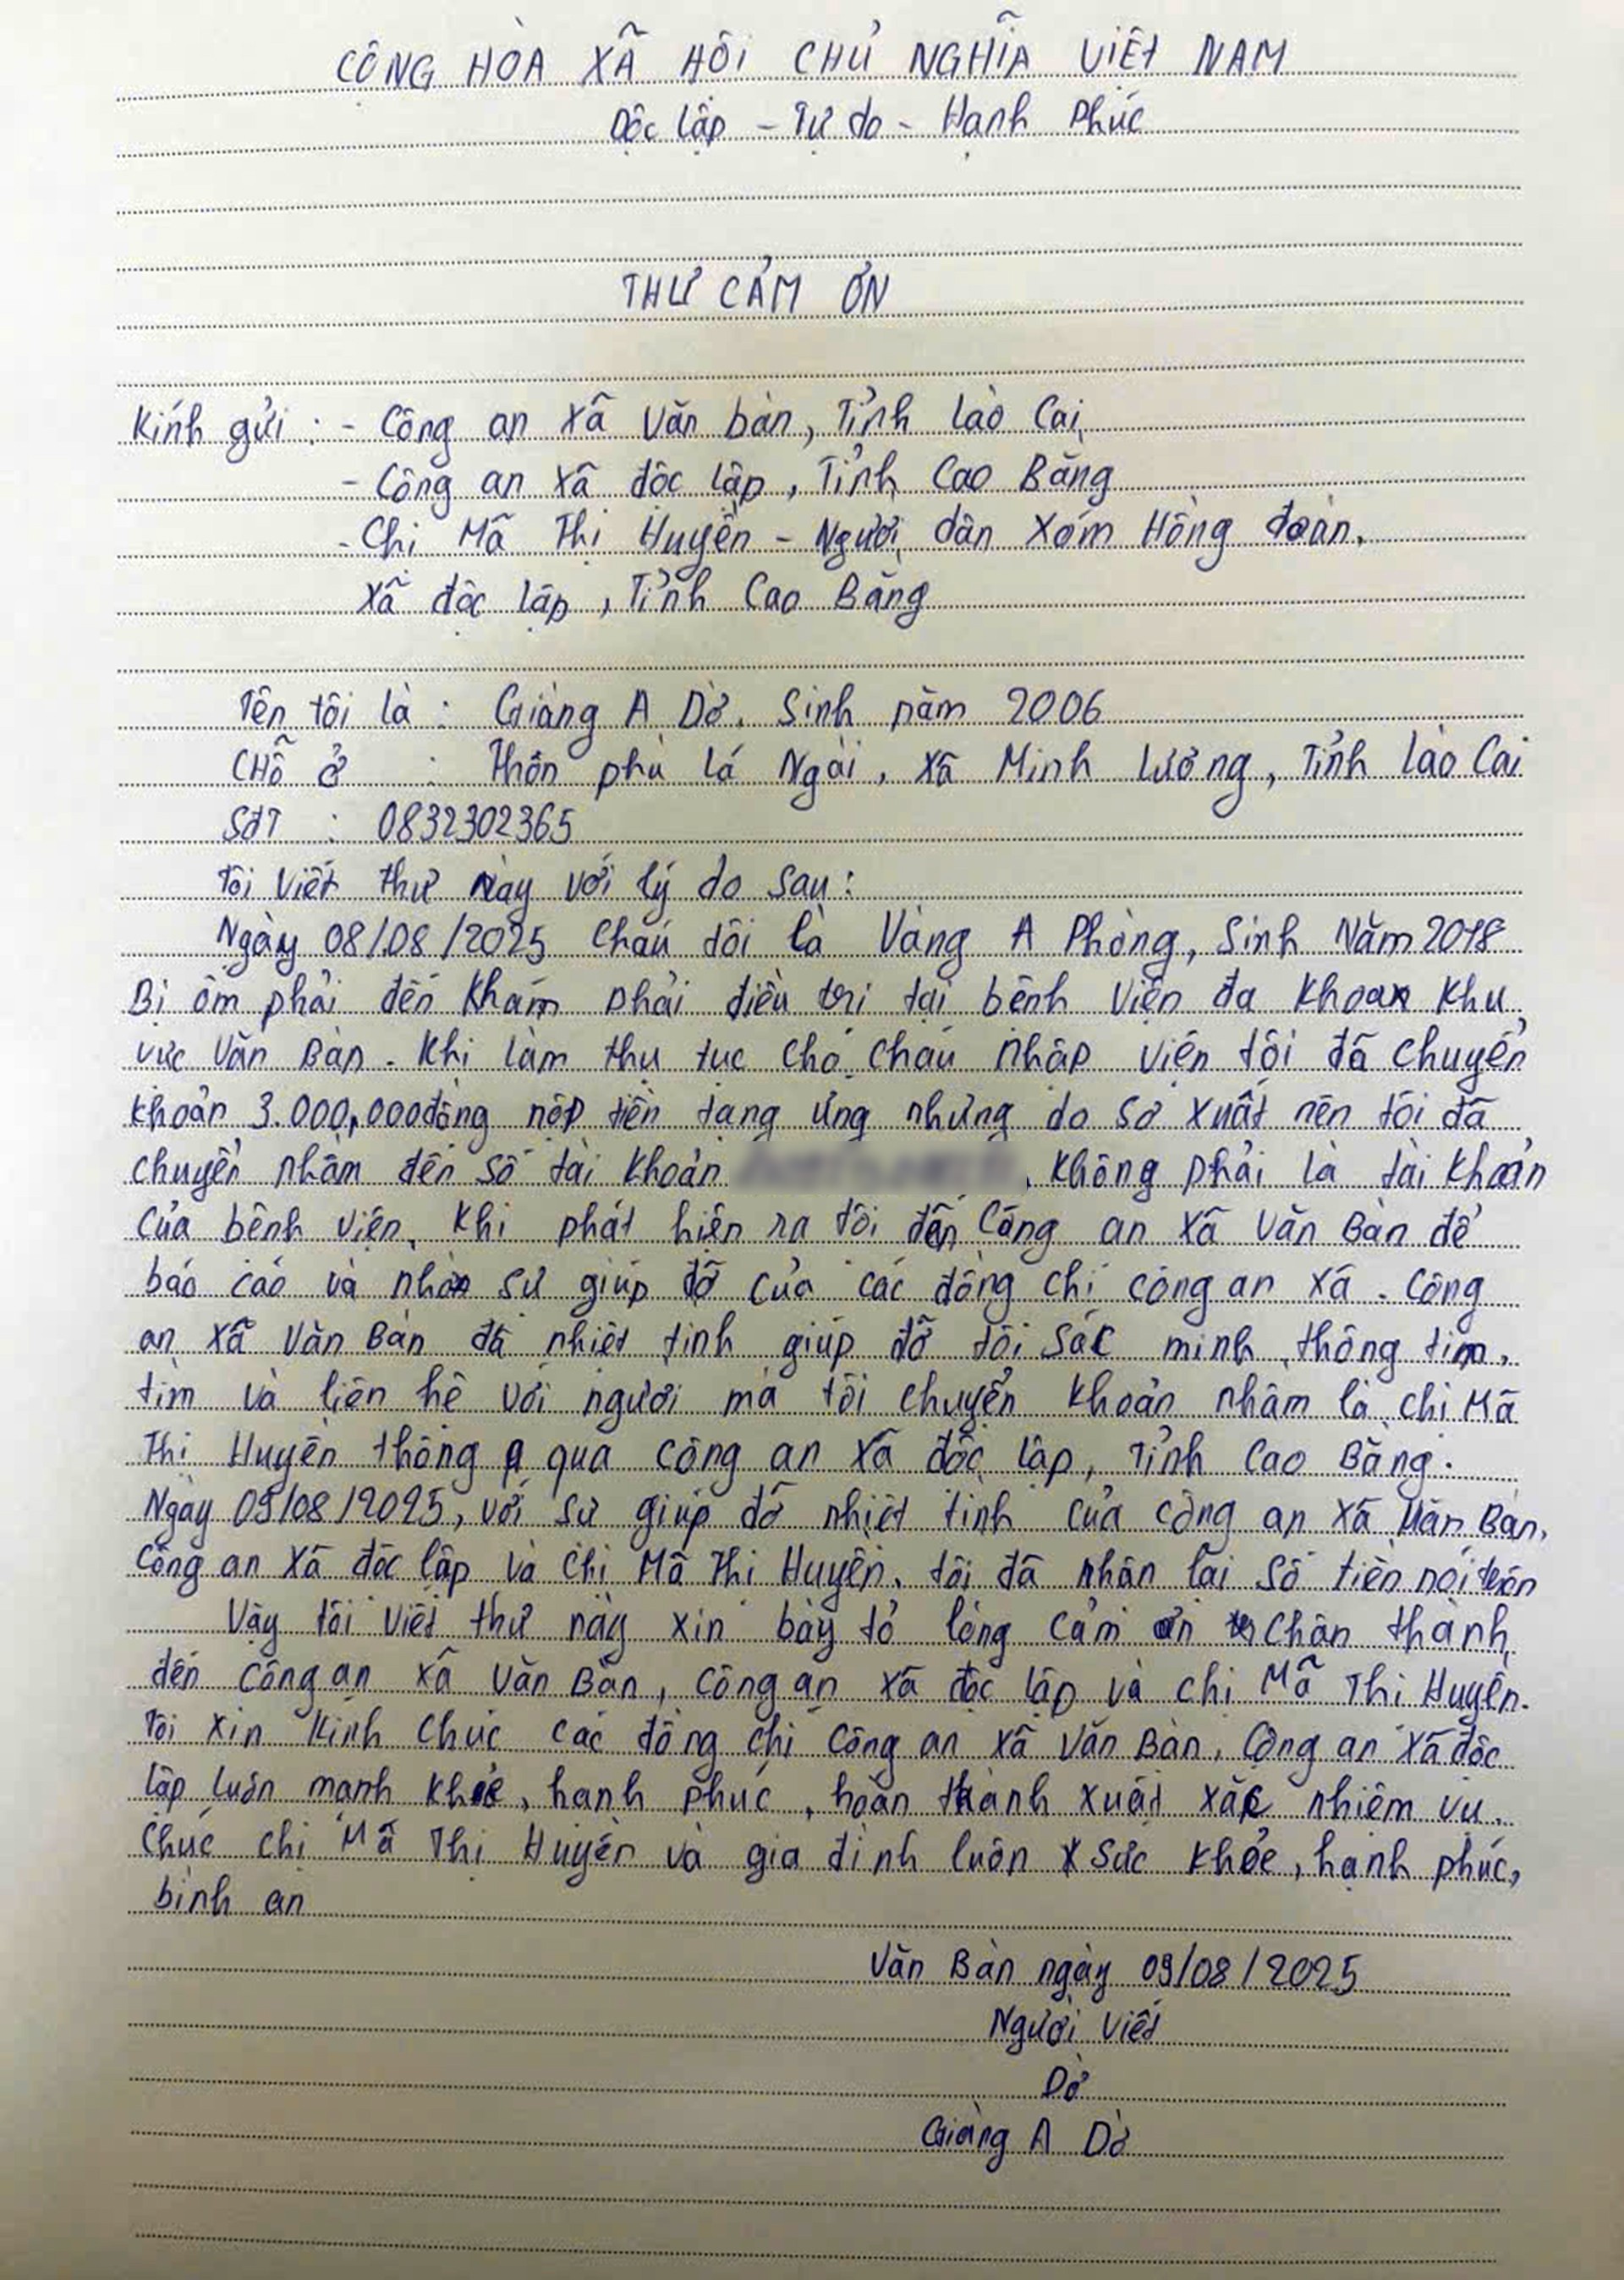 CỘNG HÒA XÃ HỘI CHỦ NGHĨA VIỆT NAM
Độc lập - Tự do - Hạnh Phúc
THƯ CẢM ƠN
Kính gửi : - Công an xã Văn bàn, Tỉnh Lào Cai
- Công an xã độc lập, Tỉnh Cao Bằng
- Chị Mã Thị Huyền - Người dân Xóm Hồng đoàn,
xã độc lập, Tỉnh Cao Bằng
Tên tôi là : Giàng A Dờ. Sinh năm 2006
CHỗ ở : Thôn phù lá Ngài, xã Minh Lương, Tỉnh Lào Cai
SđT : 0832302365
Tôi viết thư này với lý do sau :
Ngày 08/08/2025 cháu tôi là Vàng A Phòng, Sinh Năm 2018
Bị ốm phải đến khám phải điều trị tại bệnh viện đa khoa khu
vực Văn Bàn. Khi làm thụ tục cho cháu nhập viện tôi đã chuyển
khoản 3.000,000đồng nộp tiền tạng ứng nhưng do sơ xuất nên tôi đã
chuyển nhầm đến số tài khoản không phải là tài khoản
của bệnh viện. Khi phát hiện ra tôi đến Công an xã Văn Bàn để
báo cáo và nhờ sự giúp đỡ của các đồng chí công an xã. Công
an xã Văn Bàn đã nhiệt tình giúp đỡ tôi sác minh thông tin,
tìm và liên hệ với người mà tôi chuyển khoản nhầm là chị Mã
Thị Huyền thông qua công an xã độc lập, Tỉnh Cao Bằng.
Ngày 09/08/2025, với sự giúp đỡ nhiệt tình của công an xã Văn Bàn,
Công an xã độc lập và chị Mã Thị Huyền, tôi đã nhận lại số tiền nói trên
Vậy tôi viết thư này xin bày tỏ lòng cảm ơn chân thành
đến Công an xã Văn Bàn, công an xã độc lập và chị Mã Thị Huyền.
Tôi xin kính chúc các đồng chí Công an xã Văn Bàn, Công an xã độc
lập luôn mạnh khỏe, hạnh phúc, hoàn thành xuất xắc nhiệm vụ.
Chúc chị Mã Thị Huyền và gia đình luôn sức khỏe, hạnh phúc,
bình an
Văn Bàn ngày 09/08/2025
Người viết
Dờ
Giàng A Dờ